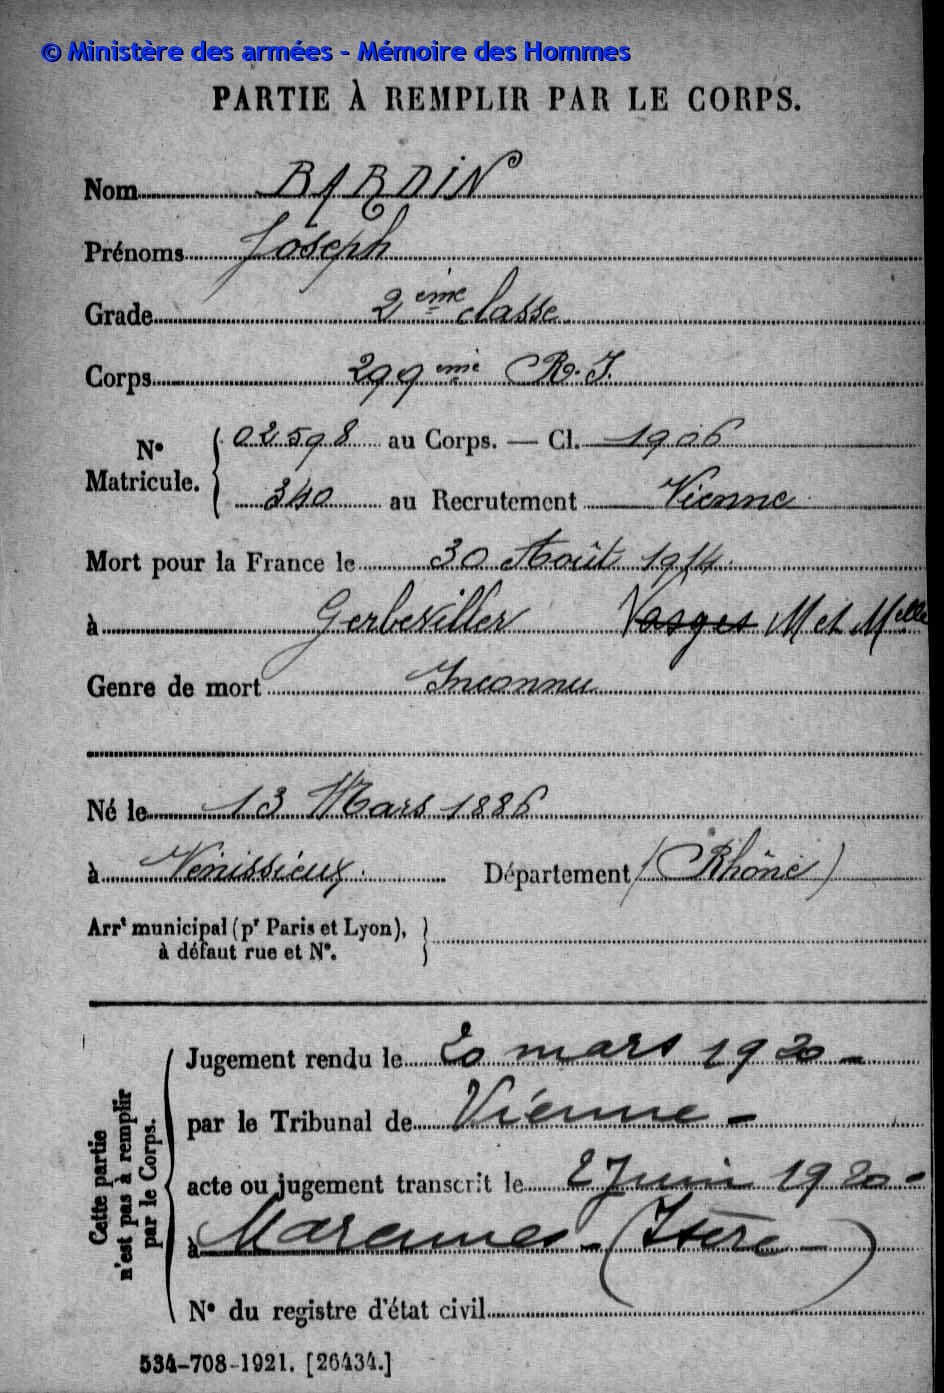 © Ministère des armées - Mémoire des Hommes
PARTIE À REMPLIR PAR LE CORPS.
Nom BARDIN
Prénoms Joseph
Grade 2ème classe
Corps 299ème R.I.
N° Matricule. 02598 au Corps. — Cl. 1906
340 au Recrutement Vienne
Mort pour la France le 30 Août 1914
à Gerbeviller Vosges M et Mlle
Genre de mort Inconnu
Né le 13 Mars 1886
à Vénissieux. Département (Rhône)
Arrt municipal (pr Paris et Lyon),
à défaut rue et N°.
Cette partie
n'est pas à remplir
par le Corps.
Jugement rendu le 20 mars 1920 -
par le Tribunal de Vienne -
acte ou jugement transcrit le 2 Juin 1920 -
à Marennes - (Isère)
N° du registre d'état civil
534-708-1921. [26434.]